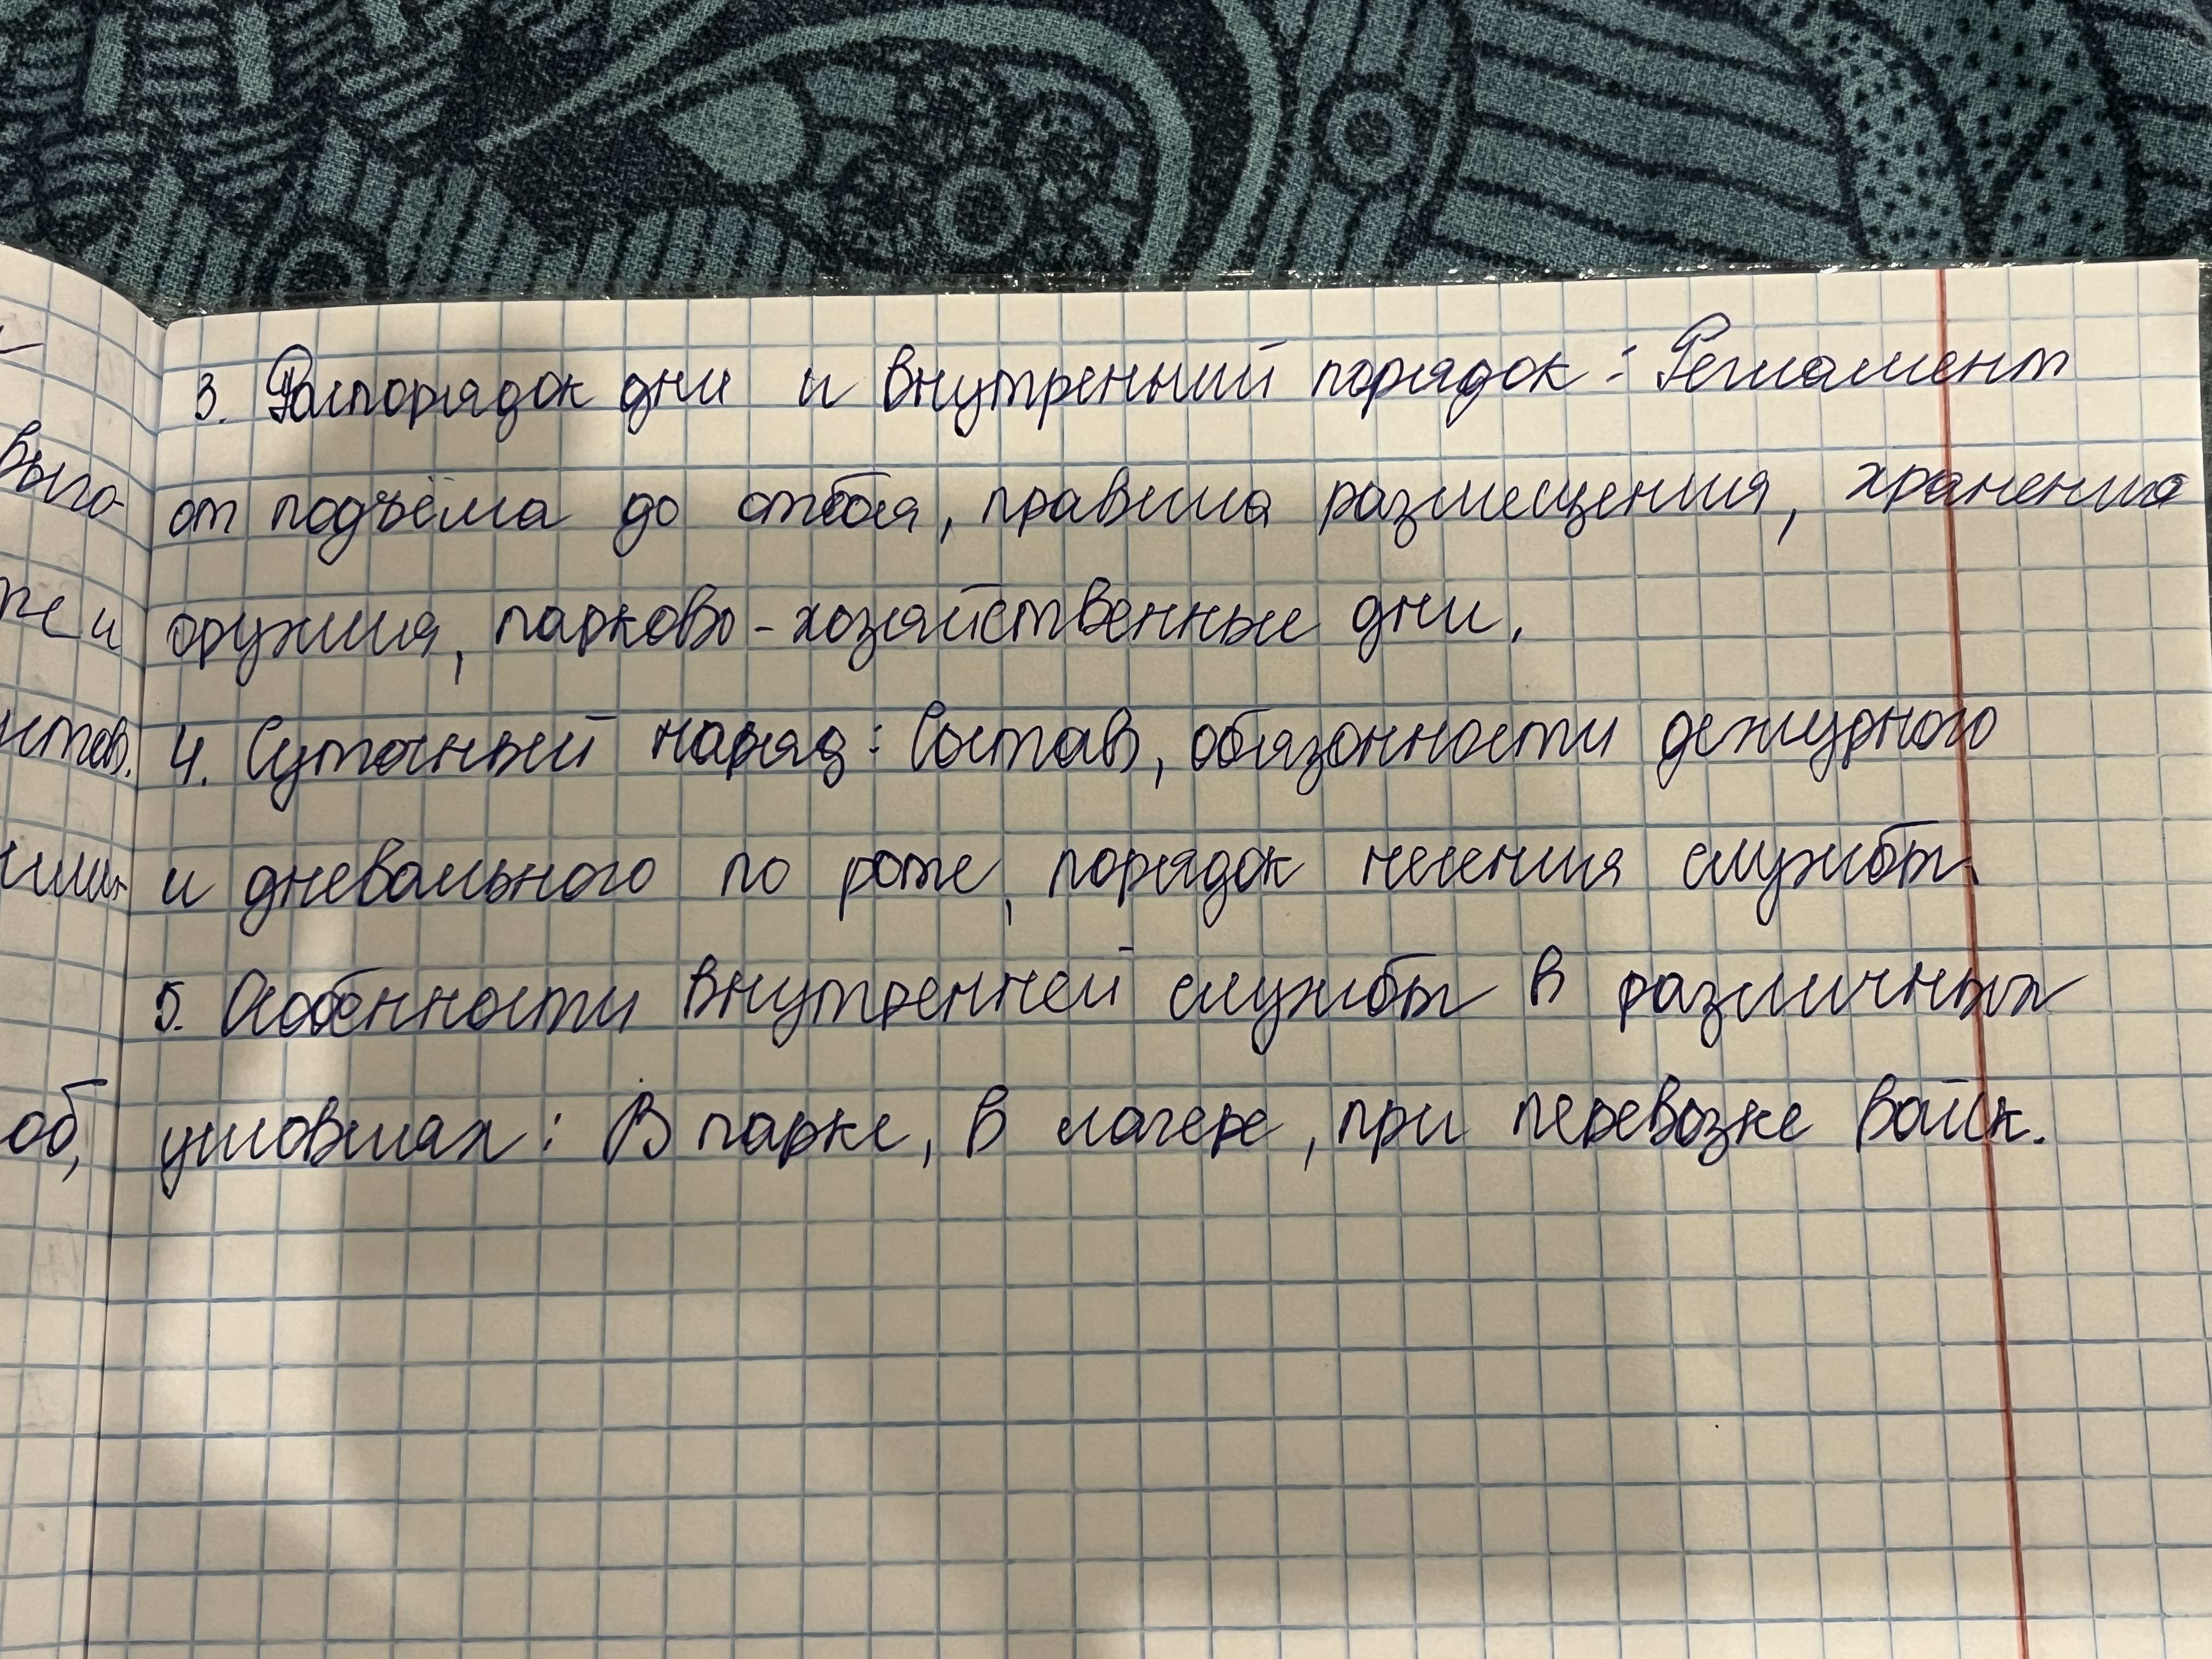 3. Распорядок дни и внутренний порядок: Регламент
от подъёма до отбоя, правила размещения, хранения
оружия, парково-хозяйственные дни.
4. Суточный наряд: Состав, обязонности дежурного
и дневального по роте, порядок несения службы.
5. Особенности внутренней службы в различных
условиях: В парке, в лагере, при перевозке войск.